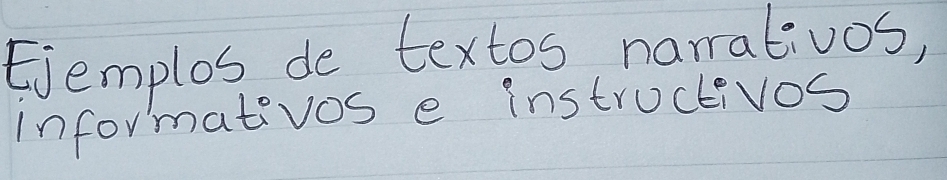 Ejemplos de textos narrativos,
informativos e instructivos